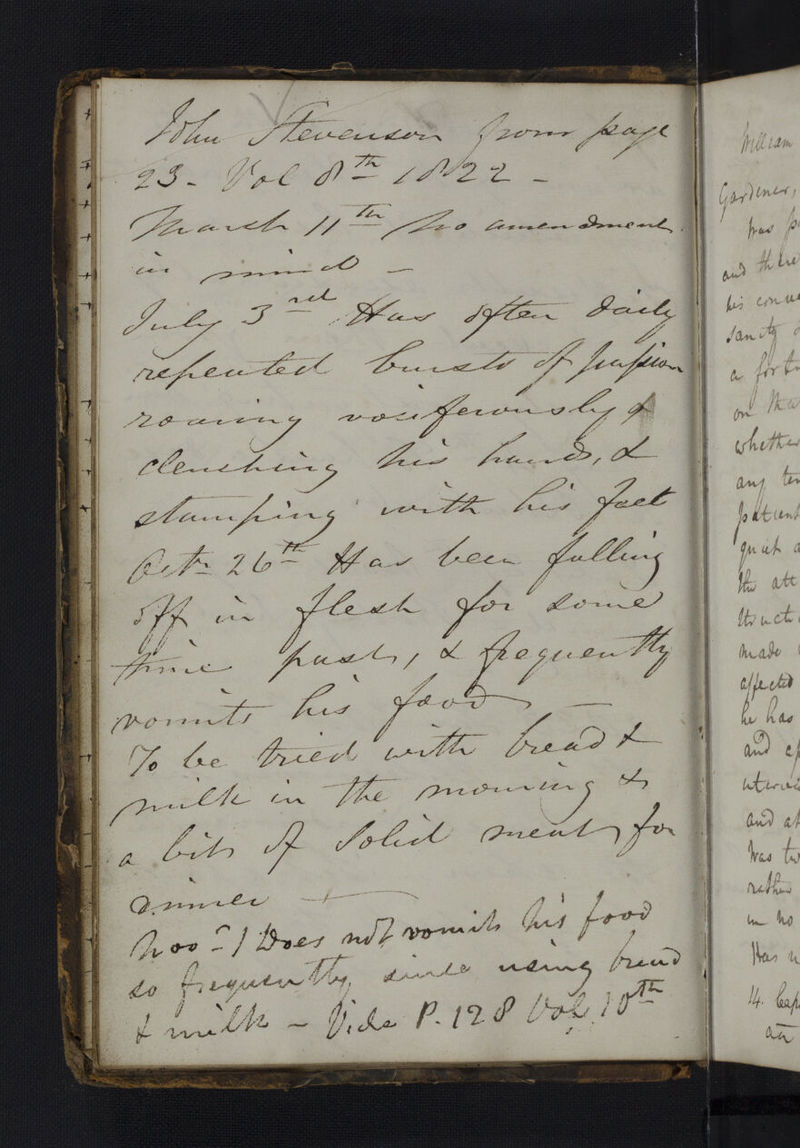 John Stevenson from page
23 - Vol 8th 1822 -
March 11th No amendment
in mind -
July 3rd Has often daily
repeated bursts of passion
roaring vociferously &
clenching his hands, &
stamping with his feet
Octr 26th Has been falling
off in flesh for some
time past, & frequently
vomits his food -
To be tried with bread &
milk in the morning &
a bit of Solid meat for
dinner -
Does not vomit his food
so frequently since using bread
& milk - Vide P. 128 Vol 10th
William
Gardener,
was
and there
his
a
on
whether
any
patient
quiet
the att
made
affected
he has
and
and
was
rather
in no
Has
14.